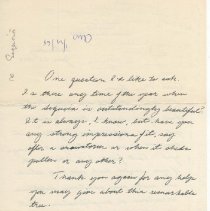 One question I'd like to ask.
Is there any time of the year when
the sequoia is outstandingly beautiful?
It is always, I know, but have you
any strong impressions of it, say
after a snowstorm or when it sheds
pollen or any other?
Thank you again for any help
you may give about this remarkable
tree.